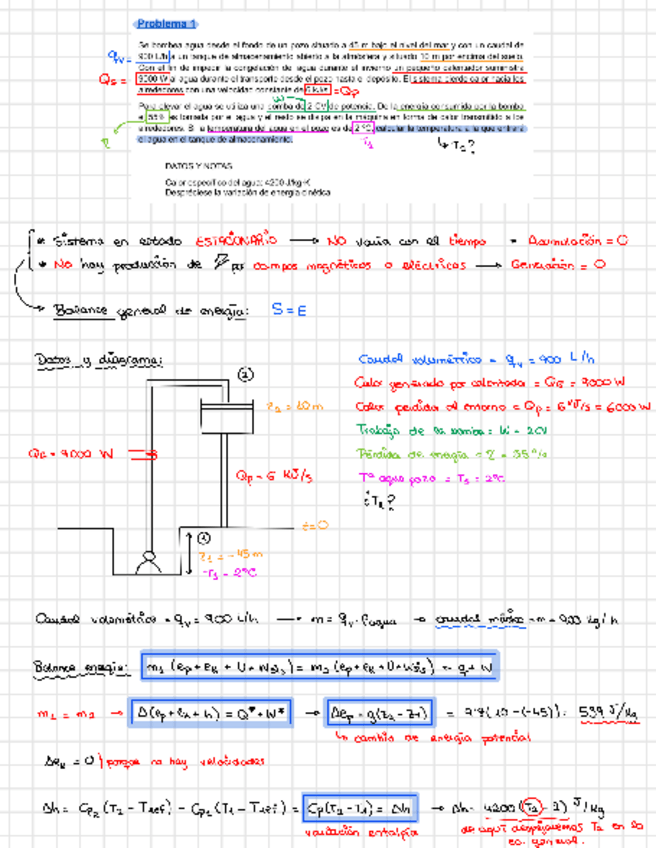 Problema 1
Se bombea agua desde el fondo de un pozo situado a 45 m bajo el nivel del mar y con un caudal de
qv= 900 L/h a un tanque de almacenamiento abierto a la atmósfera y situado 10 m por encima del suelo.
Con el fin de impedir la congelación de agua durante el invierno un pequeño calentador suministra
9000 W al agua durante el transporte desde el pozo hasta el depósito. El sistema pierde calor hacia los
alrededores con una velocidad constante de 6 kJ/s = Qp
Para elevar el agua se utiliza una bomba de 2 CV de potencia. De la energía consumida por la bomba
el 55% es tomada por el agua y el resto se disipa en la máquina en forma de calor transmitido a los
alrededores. Si la temperatura del agua en el pozo es de 2 ºC, calcular la temperatura a la que entrará
el agua en el tanque de almacenamiento.
↳ T2?
DATOS Y NOTAS
Calor específico del agua: 4200 J/kg·K
Despréciese la variación de energía cinética
* Sistema en estado ESTACIONARIO → NO varía con el tiempo * Acumulación = 0
* No hay producción de por campos magnéticos o eléctricos → Generación = 0
Balance general de energía: S = E
Datos y diagrama:
Caudal volumétrico = qv = 900 L/h
Calor generado por = 9000 W
Calor perdida al entorno = Qp = 6 kJ/s = 6000 W
Trabajo de la bomba = W = 2CV
Pérdida de energía =
Tª agua pozo = T1 = 2ºC
¿T2?
②
= 9000 W
Qp = 6 KJ/s
z=0
①
z1 = -45 m
T1 = 2ºC
Caudal volumétrico = qv = 900 L/h → m = qv · ρagua → caudal másico = m = 900 kg/h
Balance energía:
m1 = m2 → Δ(ep + ek + h) = Q* + W* → Δep = g(z2 - z1) = (10 - (-45)) = 539 J/kg
↳ cambio de energía potencial
Δek = 0 } porque no hay velocidades
Δh = Cp2 (T2 - Tref) - Cp1 (T1 - Tref) = Cp(T2 - T1) = Δh → Δh = 4200 (T2 - 2) J/kg
variación entalpía
de aquí despejaremos T2 en la
ec. general.